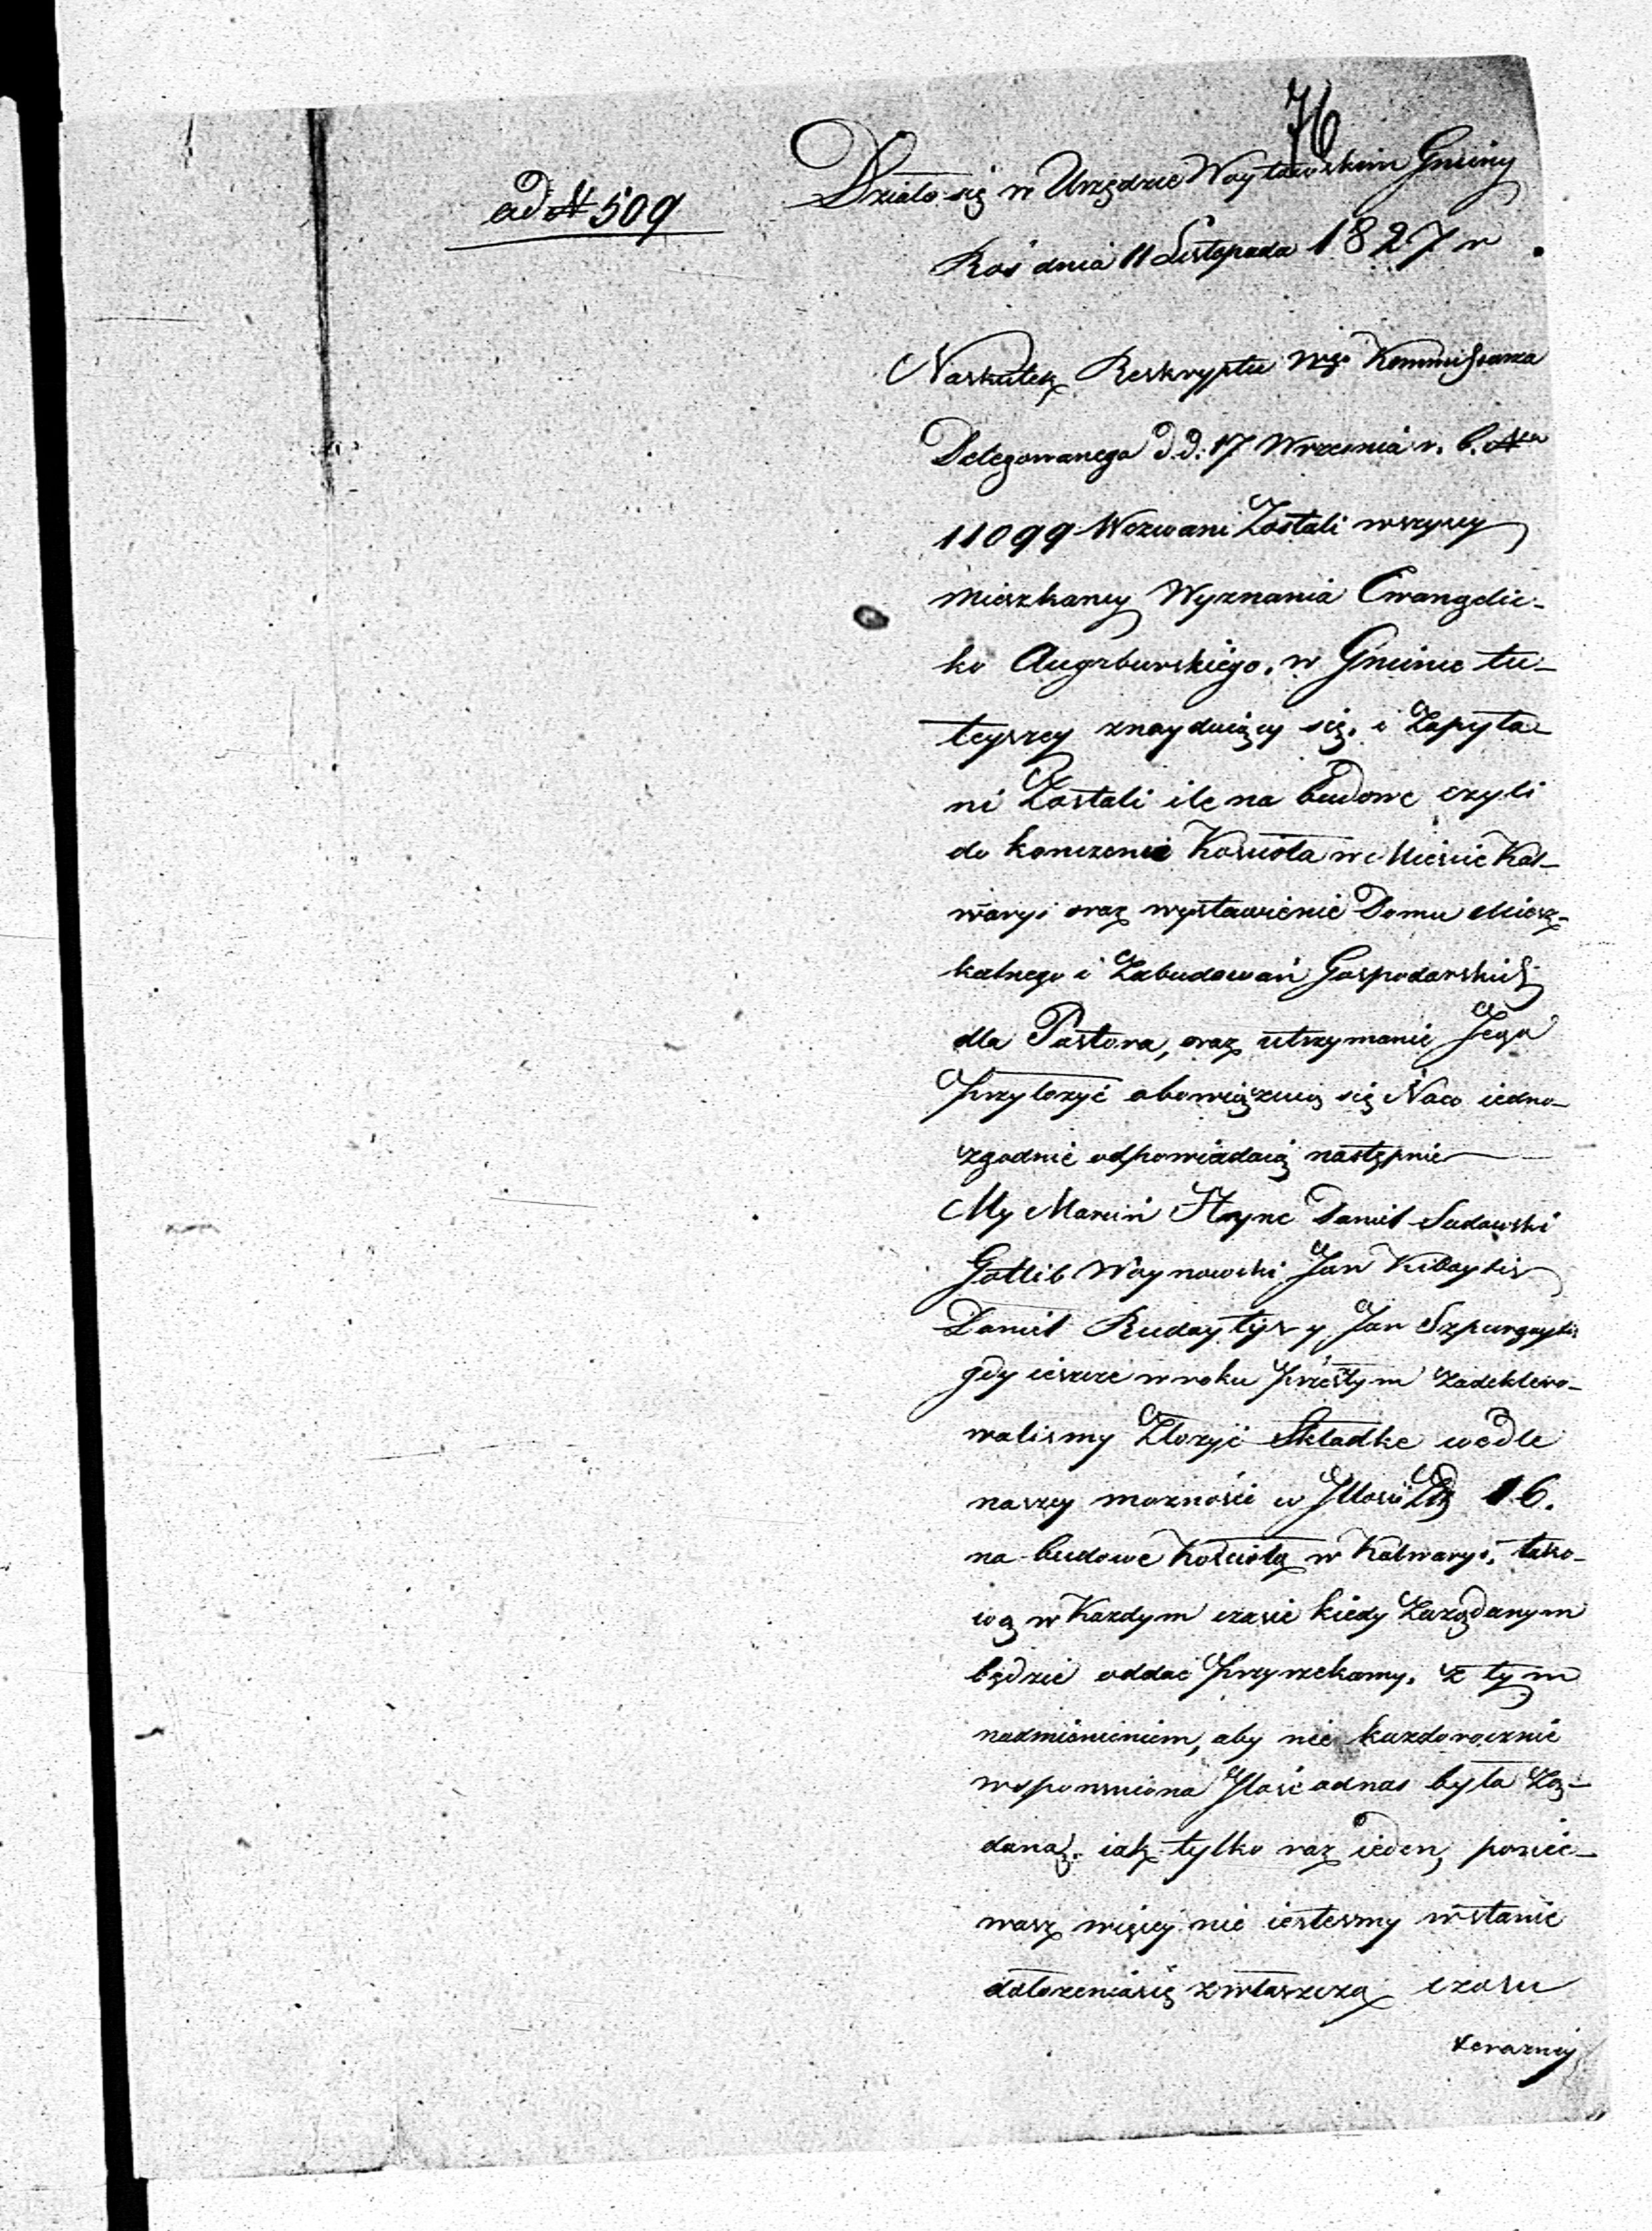 76
ad N 509
Działo się w Urzędzie Woytowskim Gminy
Roś dnia 11 Listopada 1827 r
Naskutek Reskryptu Wgo Kommissarza
Delegowanego d.d. 17 Września r. b. Nro
11099 Wezwani Zostali wszyscy
Mieszkancy Wyznania Ewangelic-
ko Augzburskiego, w Gminie tu-
teyszey znayduiący się, i Zapyta-
ni Zostali ile na budowe czyli
do konczenie Kościoła w Mieście Kal-
waryi oraz wystawienie Domu Miesz-
kalnego i Zabudowań Gospodarskich
dla Pastora, oraz utrzymanie Jego
Przyłozyć obowiązuią się Naco iedno-
zgodnie odpowiadaią następnie
My Marcin Daniel Sudowski
Gotlib Woynowski Jan Kibaytis
Daniel Rudaytys y Jan Szpurgaytis
gdy ieszcze w roku Przeszłym zadeklero-
walismy Złozyć Składke wedle
naszey moznosci w Jllosci Zł 16.
na budowe Kościoła w Kalwaryi, tako-
wą w Kazdym czasie kiedy Zarządanym
będzie oddać Przyrzekamy, z tym
nadmienieniem, aby nie kazdorocznie
wspomniona Jlość odnas była Zą-
daną, iak tylko raz ieden, ponie-
wasz więcey nie iestesmy wstanie
dołozeniasię zwłaszcza czasu
terazniey